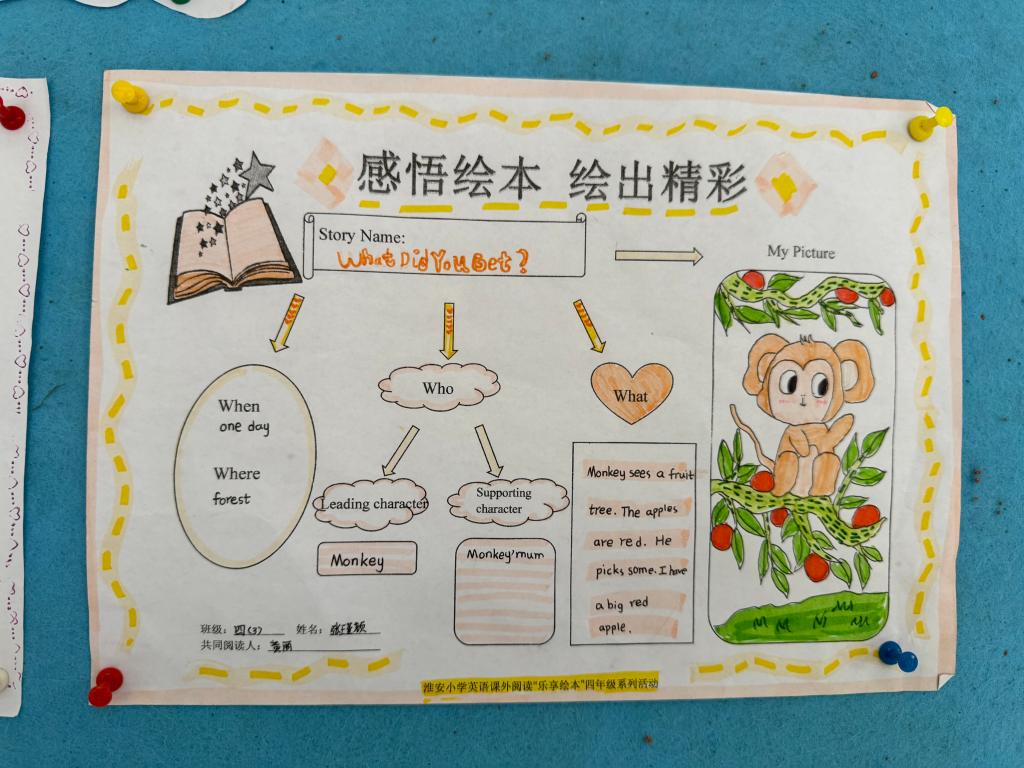 感悟绘本 绘出精彩
Story Name:
What Did You Get?
My Picture
When
one day
Where
forest
Who
Leading character
Monkey
Supporting
character
Monkey'mum
What
Monkey sees a fruit
tree. The apples
are red. He
picks some. I have
a big red
apple.
班级：四(3) 姓名：张瑾颖
共同阅读人：黄丽
淮安小学英语课外阅读“乐享绘本”四年级系列活动